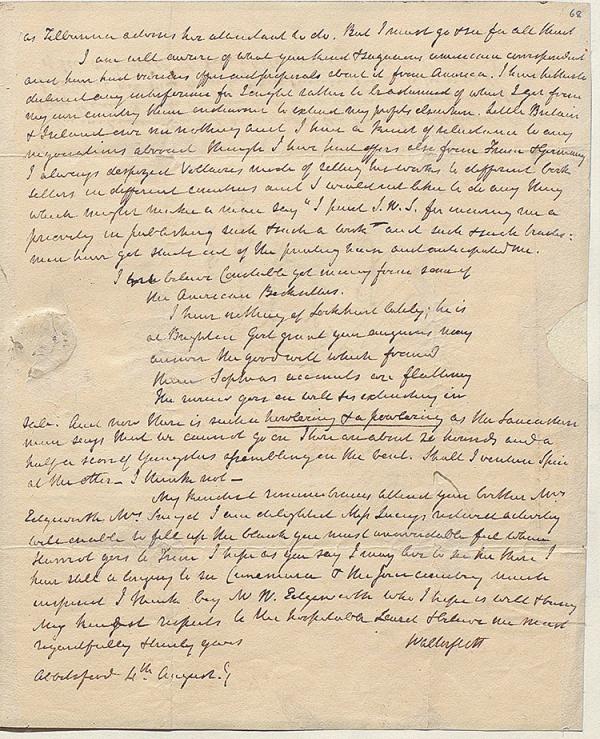 68
as Tilburina advises her attendant to do. But I must go & see for all that
I am well aware of what your kind & sagacious american correspondent
and have had various offers and proposals about it from America. I have hitherto
declined any interference for I ought rather to be ashamed of what I get from
my own country than endeavour to extend my profits elsewhere. Little Britain
& Ireland owe me nothing and I have a kind of reluctance to any
negociations abroad though I have had offers also from France & Germany
I always despized Voltaires mode of selling his works to different book
sellers in different countries and I would not like to do any thing
which might make a man say "I paid S.W.S. for insuring me a
priority in publishing such & such a work" and such & such trades:
men have got sheets out of the printing house and anticipated me.
I believe Constable got money from some of
the American Booksellers.
I hear nothing of Lockhart lately; he is
at Brighton God grant your auguries may
answer the good will which formed
them Sophias accounts are flattering
The round goes on with us extending in
scale. And now there is such a howlering & a powlering as the Lancashire
man says that we cannot go on There are about 20 hounds and a
half a score of youngsters assembling on the bent. Shall I venture Spice
at the otter – I think not –
My kindest remembrances attend your brother Mrs
Edgeworth Mrs Sneyd I am delighted Miss Lucys restored activity
will enable to fill up the blank you must unavoidable feel when
Harriot goes to I hope as you say I may live to see her there I
have still a longing to see Cunnemara & the fine country much
inspired I think by Mr W. Edgeworth who I hope is well & busy
My kindest respects to the hospitable Laird & believe me most
regardfully & truly yours
Walter Scott
Abbotsford 4th August